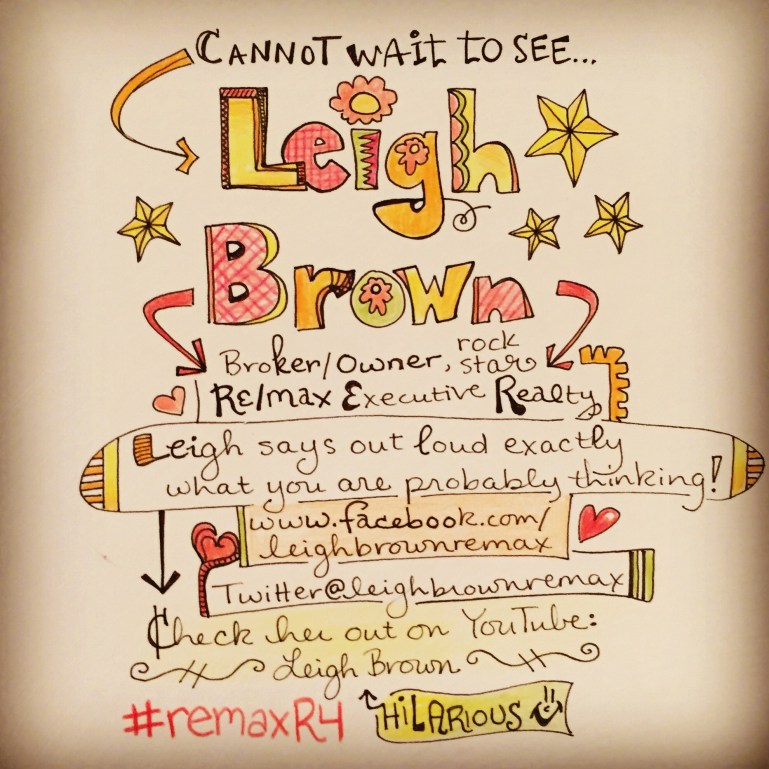 CANNOT WAIT TO SEE...
Leigh
Brown
Broker/Owner, rock star
RE/max Executive Realty
Leigh says out loud exactly
what you are probably thinking!
www.facebook.com/
leighbrownremax
Twitter@leighbrownremax
Check her out on YouTube:
Leigh Brown
#remaxR4 HiLARIOUS